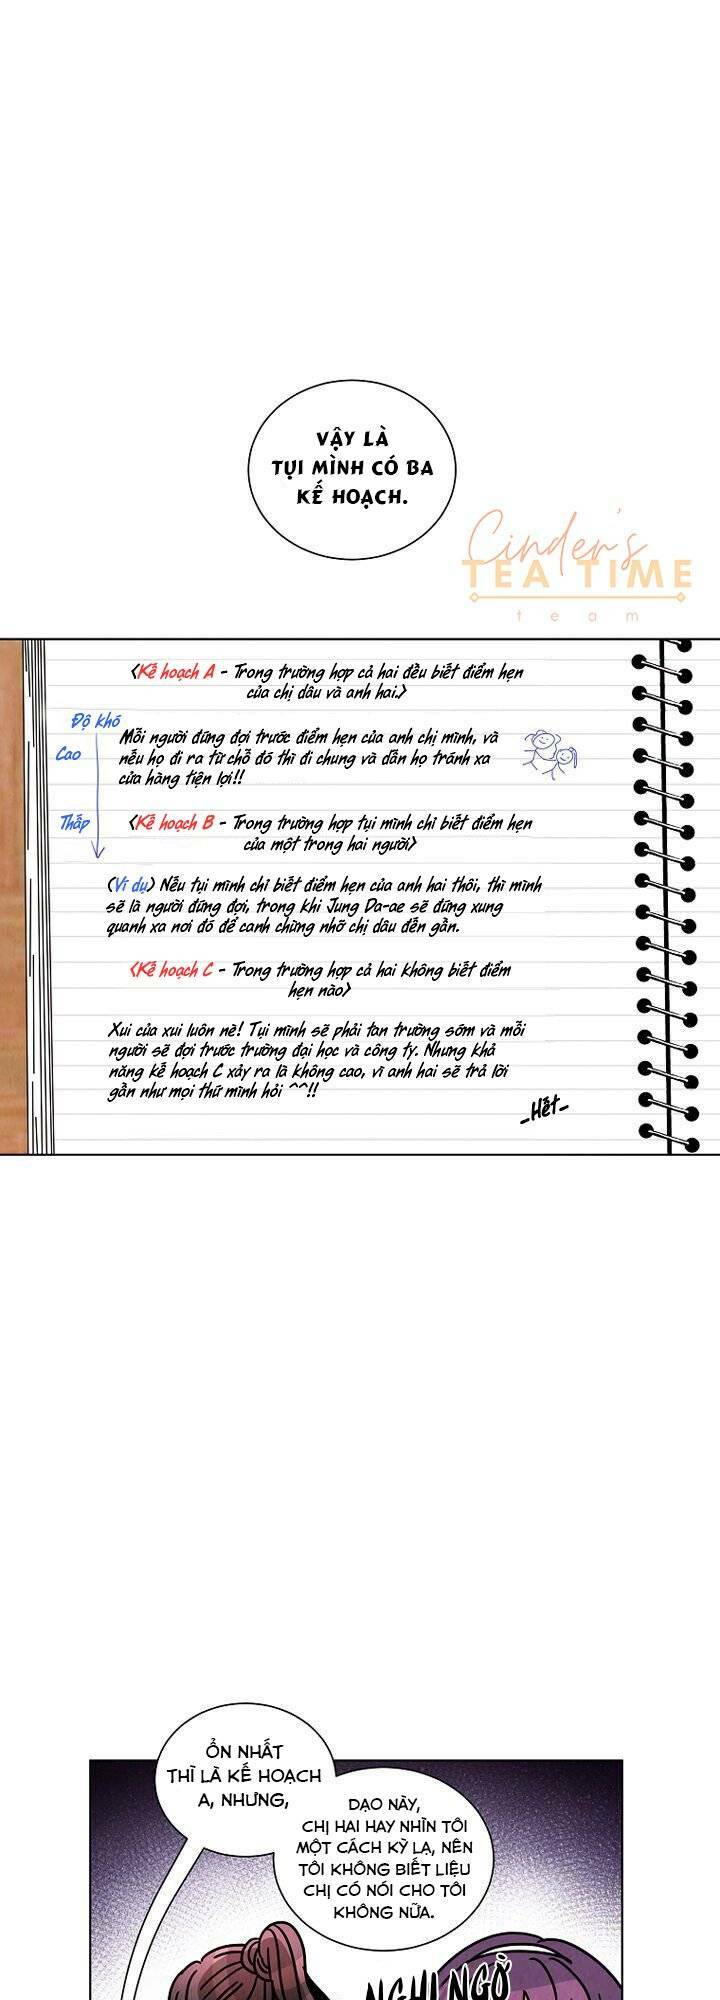 VẬY LÀ
TỤI MÌNH CÓ BA
KẾ HOẠCH.
Cinder's
TEA TIME
team
<Kế hoạch A - Trong trường hợp cả hai đều biết điểm hẹn
của chị dâu và anh hai.>
Độ khó
Cao
Mỗi người đứng đợi trước điểm hẹn của anh chị mình, và
nếu họ đi ra từ chỗ đó thì đi chung và dẫn họ tránh xa
cửa hàng tiện lợi!!
Thấp
<Kế hoạch B - Trong trường hợp tụi mình chỉ biết điểm hẹn
của một trong hai người>
(Ví dụ) Nếu tụi mình chỉ biết điểm hẹn của anh hai thôi, thì mình
sẽ là người đứng đợi, trong khi Jung Da-ae sẽ đứng xung
quanh xa nơi đó để canh chừng nhỡ chị dâu đến gần.
<Kế hoạch C - Trong trường hợp cả hai không biết điểm
hẹn nào>
Xui của xui luôn nè! Tụi mình sẽ phải tan trường sớm và mỗi
người sẽ đợi trước trường đại học và công ty. Nhưng khả
năng kế hoạch C xảy ra là không cao, vì anh hai sẽ trả lời
gần như mọi thứ mình hỏi ^^!!
_Hết_
ỔN NHẤT
THÌ LÀ KẾ HOẠCH
A, NHƯNG,
DẠO NÀY,
CHỊ HAI HAY NHÌN TÔI
MỘT CÁCH KỲ LẠ, NÊN
TÔI KHÔNG BIẾT LIỆU
CHỊ CÓ NÓI CHO TÔI
KHÔNG NỮA.
NGHI NGỜ